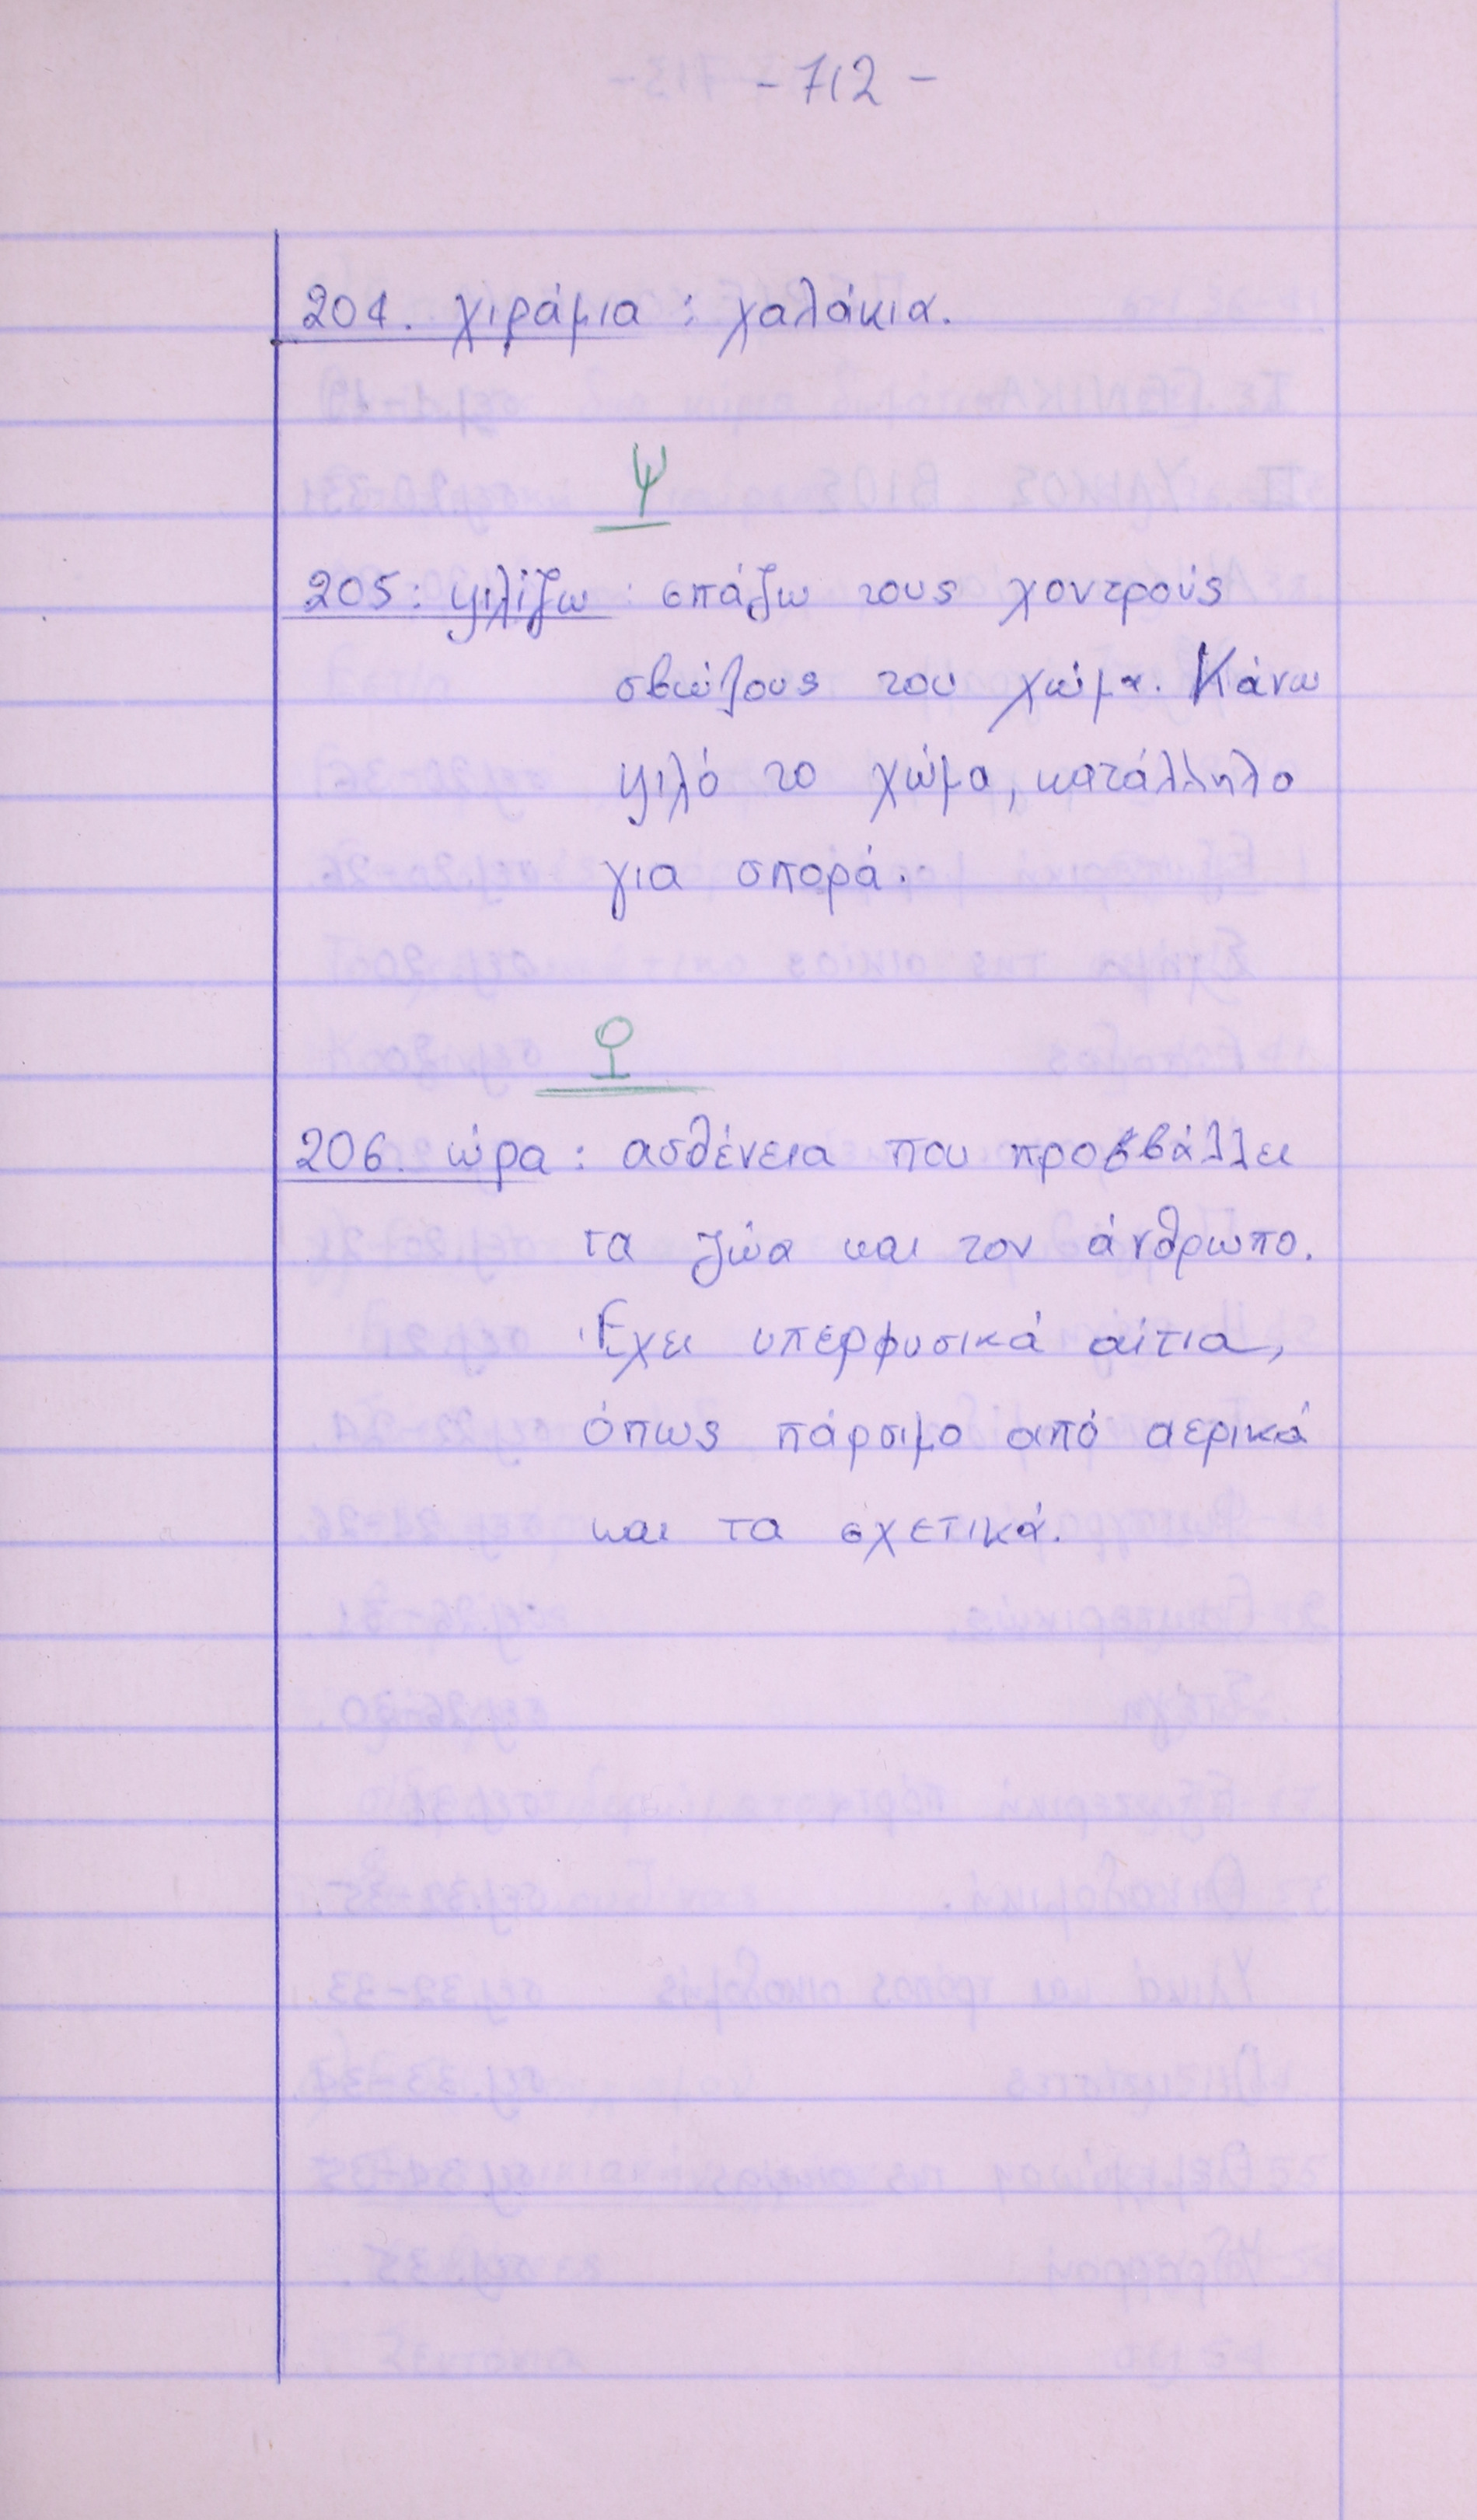 - 712 -
204. χιράμια : χαλάκια.
Ψ
205: ψιλίζω : σπάζω τους χοντρούς
σβώλους του χώμα. Κάνω
ψιλό το χώμα, κατάλληλο
για σπορά.
Ω
206. ώρα : ασθένεια που προσβάλλει
τα ζώα και τον άνθρωπο.
Έχει υπερφυσικά αίτια,
όπως πάρσιμο από αερικά
και τα σχετικά.